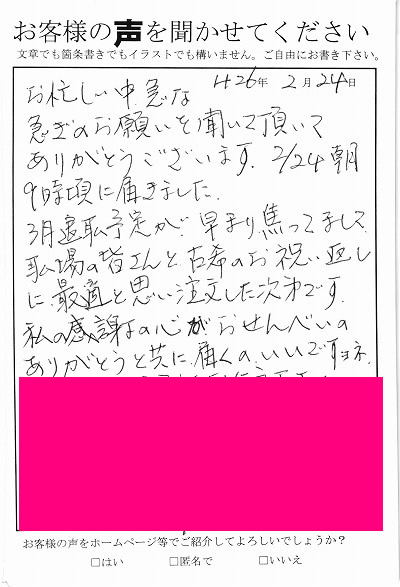 お客様の声を聞かせてください
文章でも箇条書きでもイラストでも構いません。ご自由にお書き下さい。
H26年 2月24日
お忙しい中急な
急ぎのお願いを聞いて頂いて
ありがとうございます. 2/24朝
9時頃に届きました.
3月退職予定が 早まり焦ってまして
職場の皆さんと 古希のお祝い返し
に最適と思い注文した次第です.
私の感謝の心がおせんべいの
ありがとうと共に届くの,いいですヨネ.
お客様の声をホームページ等でご紹介してよろしいでしょうか?
□はい □匿名で □いいえ